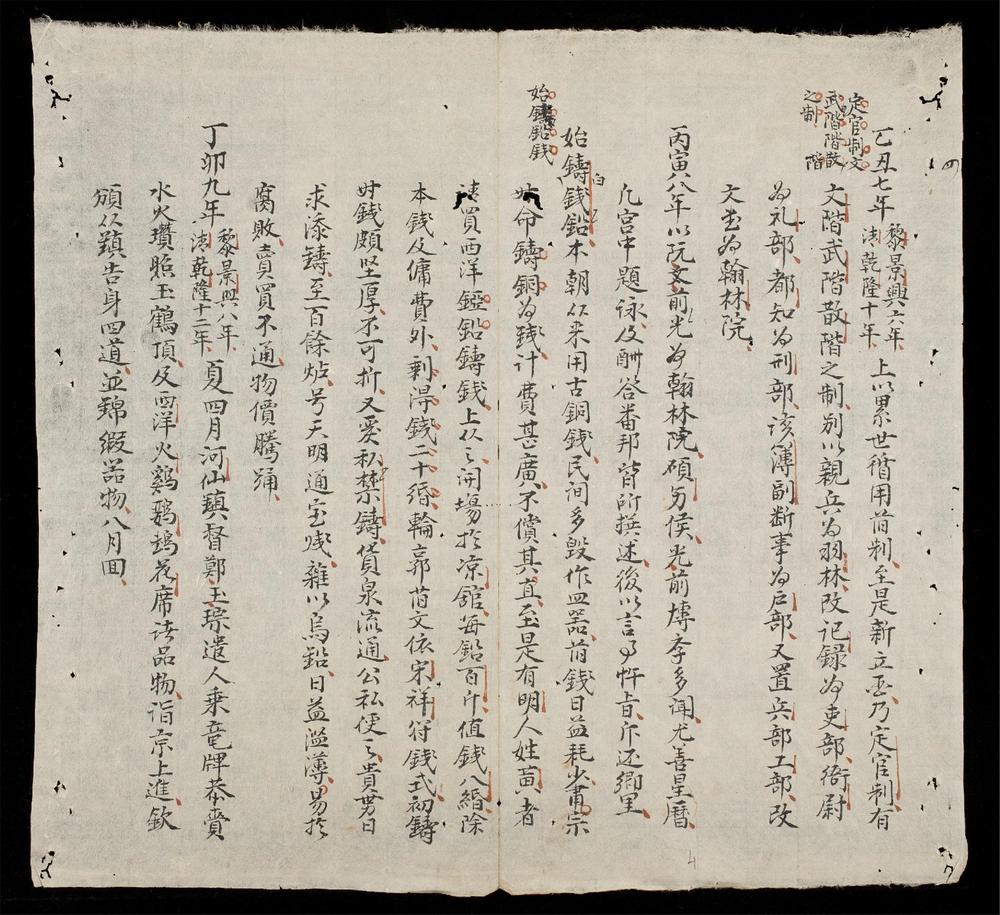 定官制文
武階散
階
之制
乙丑七年黎景興六年清乾隆十年上以累世循用前制至是新立國乃定官制有
文階武階散階之制別以親兵為羽林改记録為吏部衙尉
為礼部都知為刑部該簿副断事為户部又置兵部工部改
文書為翰林院
丙寅八年以阮文前光為翰林院碩侯光前博李多闻尤善星曆
凡宫中題詠及酬答番邦皆所撰述後以言事忤旨斥还鄉里
始鑄鉛錢
始鑄白鉛錢本朝以来用古銅錢民间多毁作皿器前錢日益耗少肅宗
始命鑄銅為錢计費甚廣不償其直至是有明人姓黄者
請買西洋鉛鑄錢上从之開場於凉舘每鉛百斤值錢八緡除
本錢及傭費外剩得錢二十緡輪郭前文依宋祥符錢式初鑄
时錢頗坚厚不可折又嚴私鑄禁貨泉流通公私便之貴贸日
求添鑄至百餘炉号天明通宝後雜以烏鉛日益濫薄易於
腐敗賣買不通物價騰踊
丁卯九年黎景興八年清乾隆十二年夏四月河仙鎮督鄭玉琮遣人乗竜牌恭賫
水火瓚照玉鶴頂及西洋火鷄鸚鵡花席诸品物诣京上進欽
頒从鎮告身四道並錦緞器物八月回
4